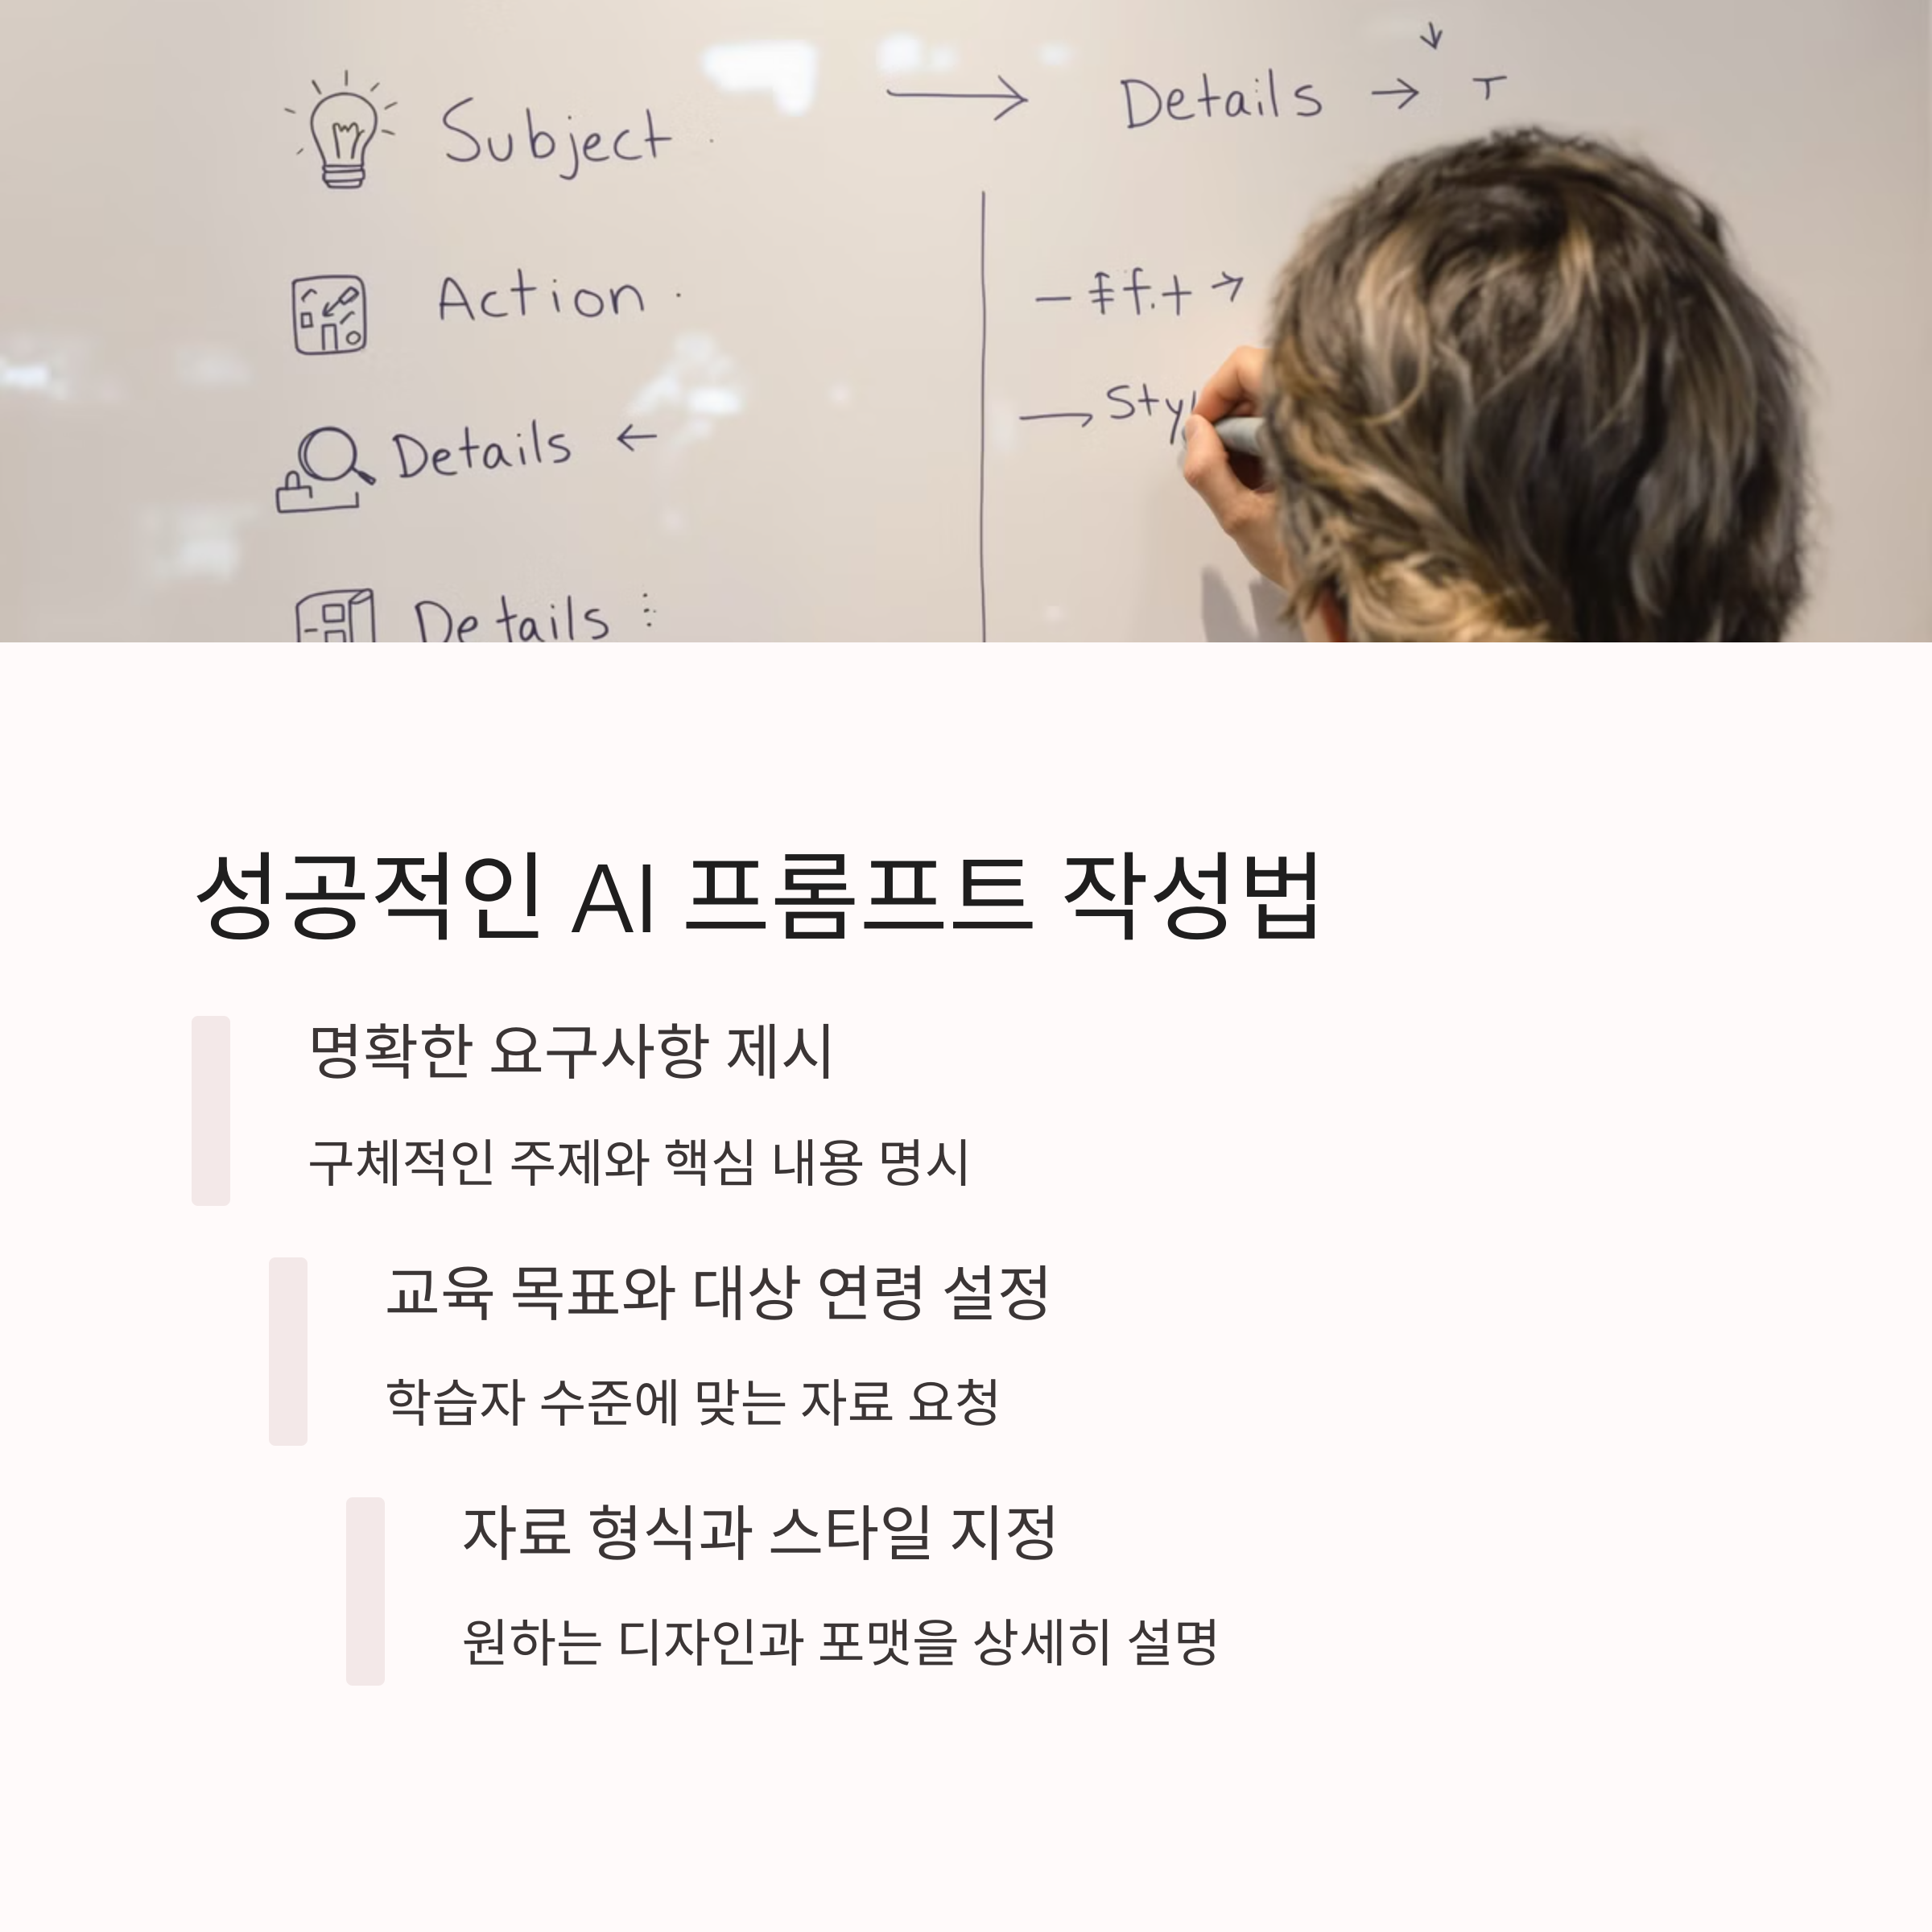 Subject
Details → T
Action
Details ←
Details
성공적인 AI 프롬프트 작성법
명확한 요구사항 제시
구체적인 주제와 핵심 내용 명시
교육 목표와 대상 연령 설정
학습자 수준에 맞는 자료 요청
자료 형식과 스타일 지정
원하는 디자인과 포맷을 상세히 설명